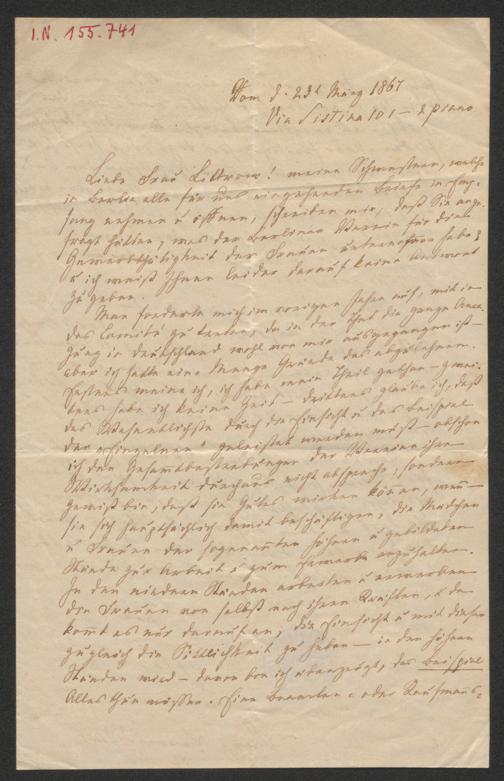 I.N. 155.741
Rom d. 23t März 1867
Via Sistina 101 – 2 piano
Liebe Frau Littrow! meine Schwestern, welche
in Berlin alle für uns eingehenden Briefe in Emp-
fang nehmen u öffnen, schreiben mir, daß Sie ange-
fragt hätten, was der Berliner Verein für die
Gewerbthätigkeit der Frauen unternommen habe?
u ich weiß Ihnen leider darauf keine Antwort
zu geben.
Man forderte mich im vorigen Jahre auf, mit in
das Comité zu treten, da in der That die ganze Anre-
gung in Deutschland wohl von mir ausgegangen ist –
aber ich hatte eine Menge Gründe das abzulehnen.
Erstens meine ich, ich habe mein Theil gethan – zwei-
tens habe ich keine Zeit – drittens glaube ich, daß
das Wesentlichste durch die Einsicht u das Beispiel
der „Einzelnen" geleistet werden muß – obschon
ich den Gesamtbestrebungen der Vereine ihre
Wirksamkeit durchaus nicht abspreche, sondern
gewiß bin, daß sie Gutes wirken können, wenn
sie sich hauptsächlich damit beschäftigen, die Mädchen
u Frauen der sogenannten höhern u gebildeten
Stände zur Arbeit u zum Erwerb anzuhalten.
In den niedern Ständen arbeiten u erwerben
die Frauen von selbst nach ihren Kräften, u da
kommt es nur darauf an, die Einsicht u mit dieser
zugleich die Sittlichkeit zu heben – in den höhern
Ständen wird – davon bin ich überzeugt, das Beispiel
Alles thun müssen. Eine Beamten- oder Kaufmanns-